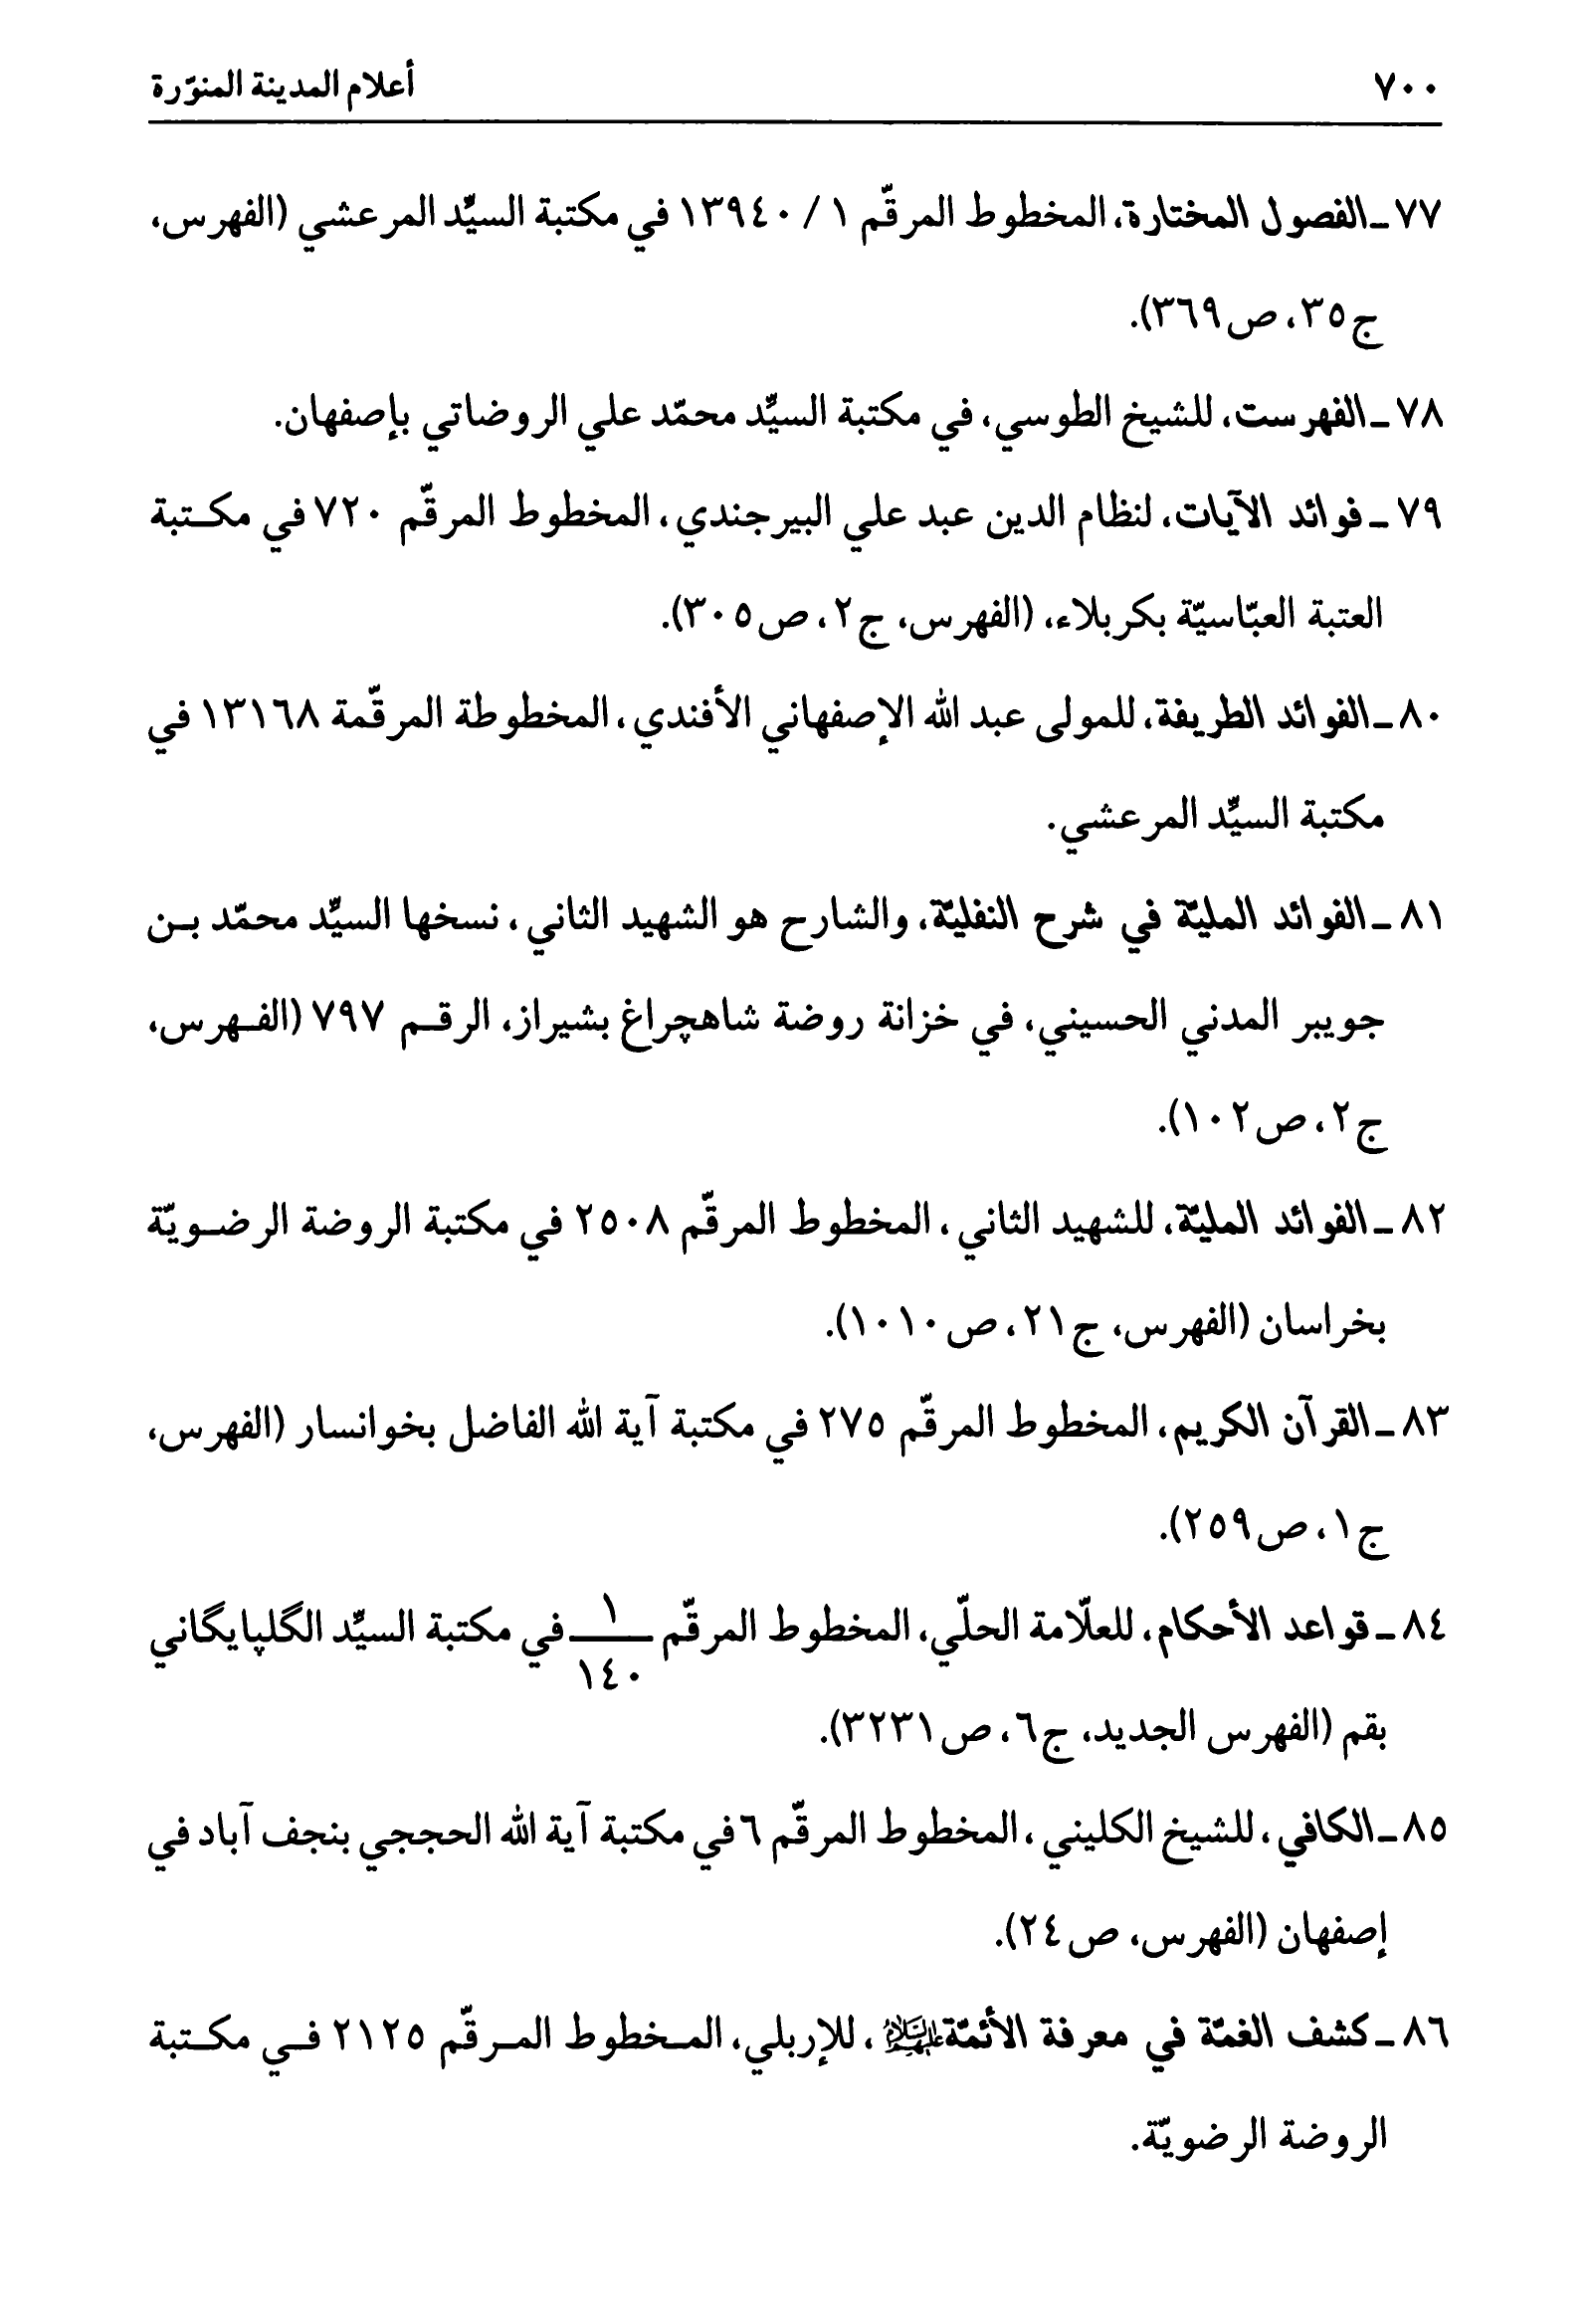 ٧٠٠
أعلام المدينة المنوّرة
٧٧ ـ الفصول المختارة، المخطوط المرقّم ١ / ١٣٩٤٠ في مكتبة السيّد المرعشي (الفهرس،
ج٣٥، ص٣٦٩).
٧٨ ـ الفهرست، للشيخ الطوسي، في مكتبة السيّد محمّد علي الروضاتي بإصفهان.
٧٩ ـ فوائد الآيات، لنظام الدين عبد علي البيرجندي، المخطوط المرقّم ٧٢٠ في مكـتبة
العتبة العبّاسيّة بكربلاء، (الفهرس، ج٢، ص٣٠٥).
٨٠ ـ الفوائد الطريفة، للمولى عبد الله الإصفهاني الأفندي، المخطوطة المرقّمة ١٣١٦٨ في
مكتبة السيّد المرعشي.
٨١ ـ الفوائد المليّة في شرح النفليّة، والشارح هو الشهيد الثاني، نسخها السيّد محمّد بـن
جويبر المدني الحسيني، في خزانة روضة شاهچراغ بشيراز، الرقـم ٧٩٧ (الفـهرس،
ج٢، ص١٠٢).
٨٢ ـ الفوائد المليّة، للشهيد الثاني، المخطوط المرقّم ٢٥٠٨ في مكتبة الروضة الرضـويّة
بخراسان (الفهرس، ج٢١، ص١٠١٠).
٨٣ ـ القرآن الكريم، المخطوط المرقّم ٢٧٥ في مكتبة آية الله الفاضل بخوانسار (الفهرس،
ج١، ص٢٥٩).
٨٤ ـ قواعد الأحكام، للعلّامة الحلّي، المخطوط المرقّم ١/١٤٠ في مكتبة السيّد الگلپايگاني
بقم (الفهرس الجديد، ج٦، ص٣٢٣١).
٨٥ ـ الكافي، للشيخ الكليني، المخطوط المرقّم ٦ في مكتبة آية الله الحججي بنجف آباد في
إصفهان (الفهرس، ص٢٤).
٨٦ ـ كشف الغمّة في معرفة الأئمّة عليهم السلام، للإربلي، المـخطوط المـرقّم ٢١٢٥ فـي مكـتبة
الروضة الرضويّة.